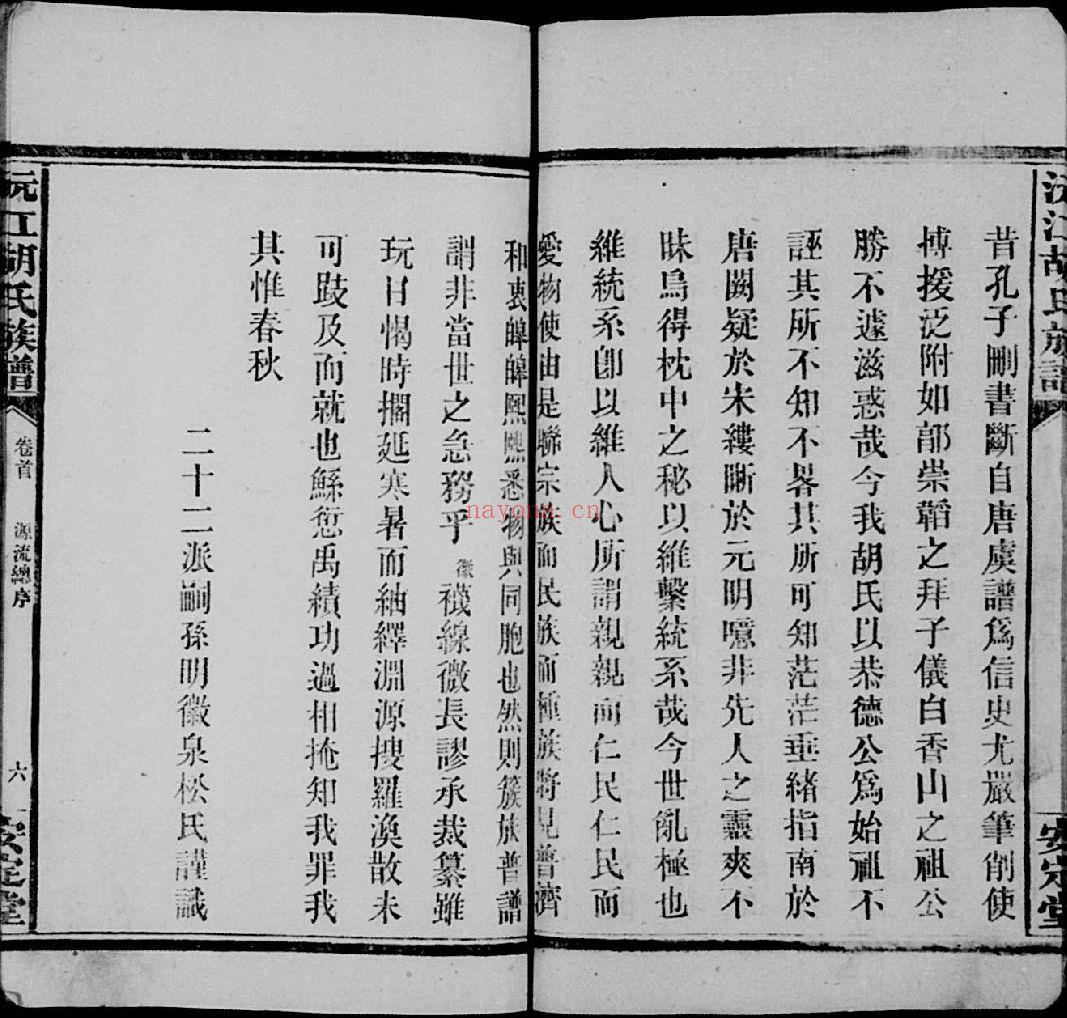 沅江胡氏族譜
安定堂
昔孔子刪書斷自唐虞譜爲信史尤嚴筆削使
搏援泛附如郭崇韜之拜子儀白香山之祖公
勝不遽滋惑哉今我胡氏以恭德公爲始祖不
誣其所不知不畧其所可知茫茫垂緒指南於
唐闕疑於宋縷晰於元明噫非先人之靈爽不
昧烏得枕中之秘以維繫統系哉今世亂極也
維統系卽以維人心所謂親親而仁民仁民而
愛物使由是聯宗族而民族而種族將見普濟
和衷皞皞熙熙悉物與同胞也然則簇族普譜
謂非當世之急務乎徽襪線微長謬承裁纂雖
玩日愒時擱延寒暑而紬繹淵源搜羅渙散未
可跂及而就也鯀愆禹績功過相掩知我罪我
其惟春秋
二十二派嗣孫明徽泉松氏謹識
沅江胡氏族譜
卷首
源流總序
六
安定堂
nayona.cn